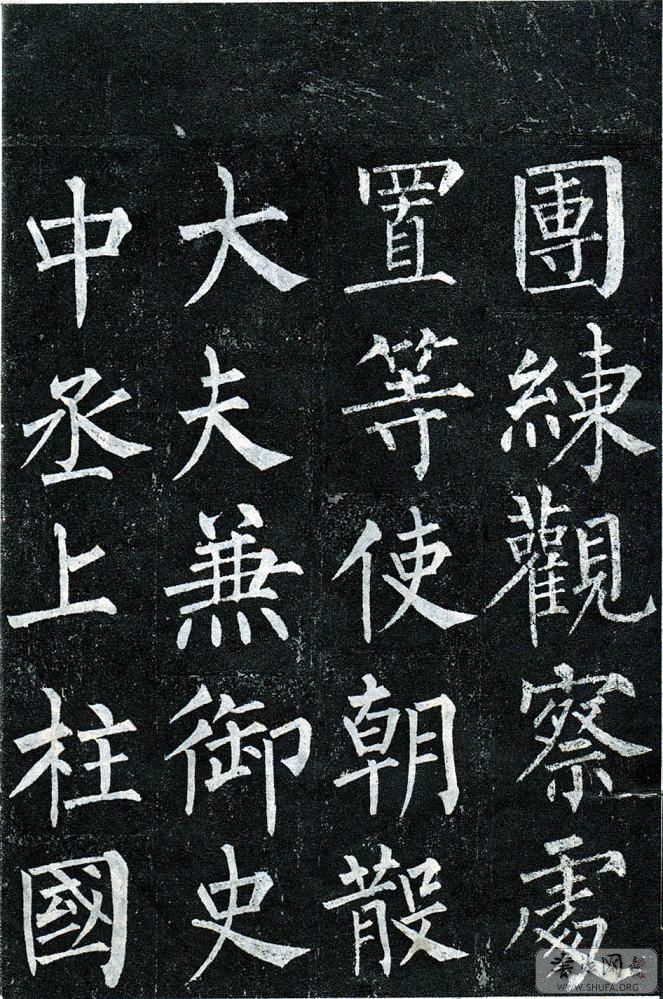 團練觀察處
置等使朝散
大夫兼御史
中丞上柱國
書法网
WWW.SHUFA.ORG